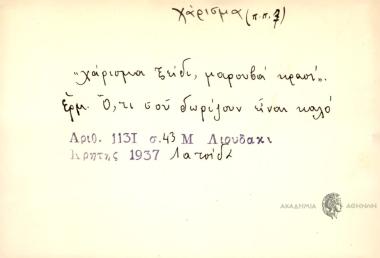 χάρισμα (π.π. 7)
„χάρισμα ξείδι, μαρουβά κρασί".
Ερμ. Ὅ,τι σοῦ δωρίζουν εἶναι καλό
Αριθ. 1131 σ.43 Μ Λιουδάκι
Κρητης 1937 Λατσίδα
ΑΚΑΔΗΜΙΑ ΑΘΗΝΩΝ